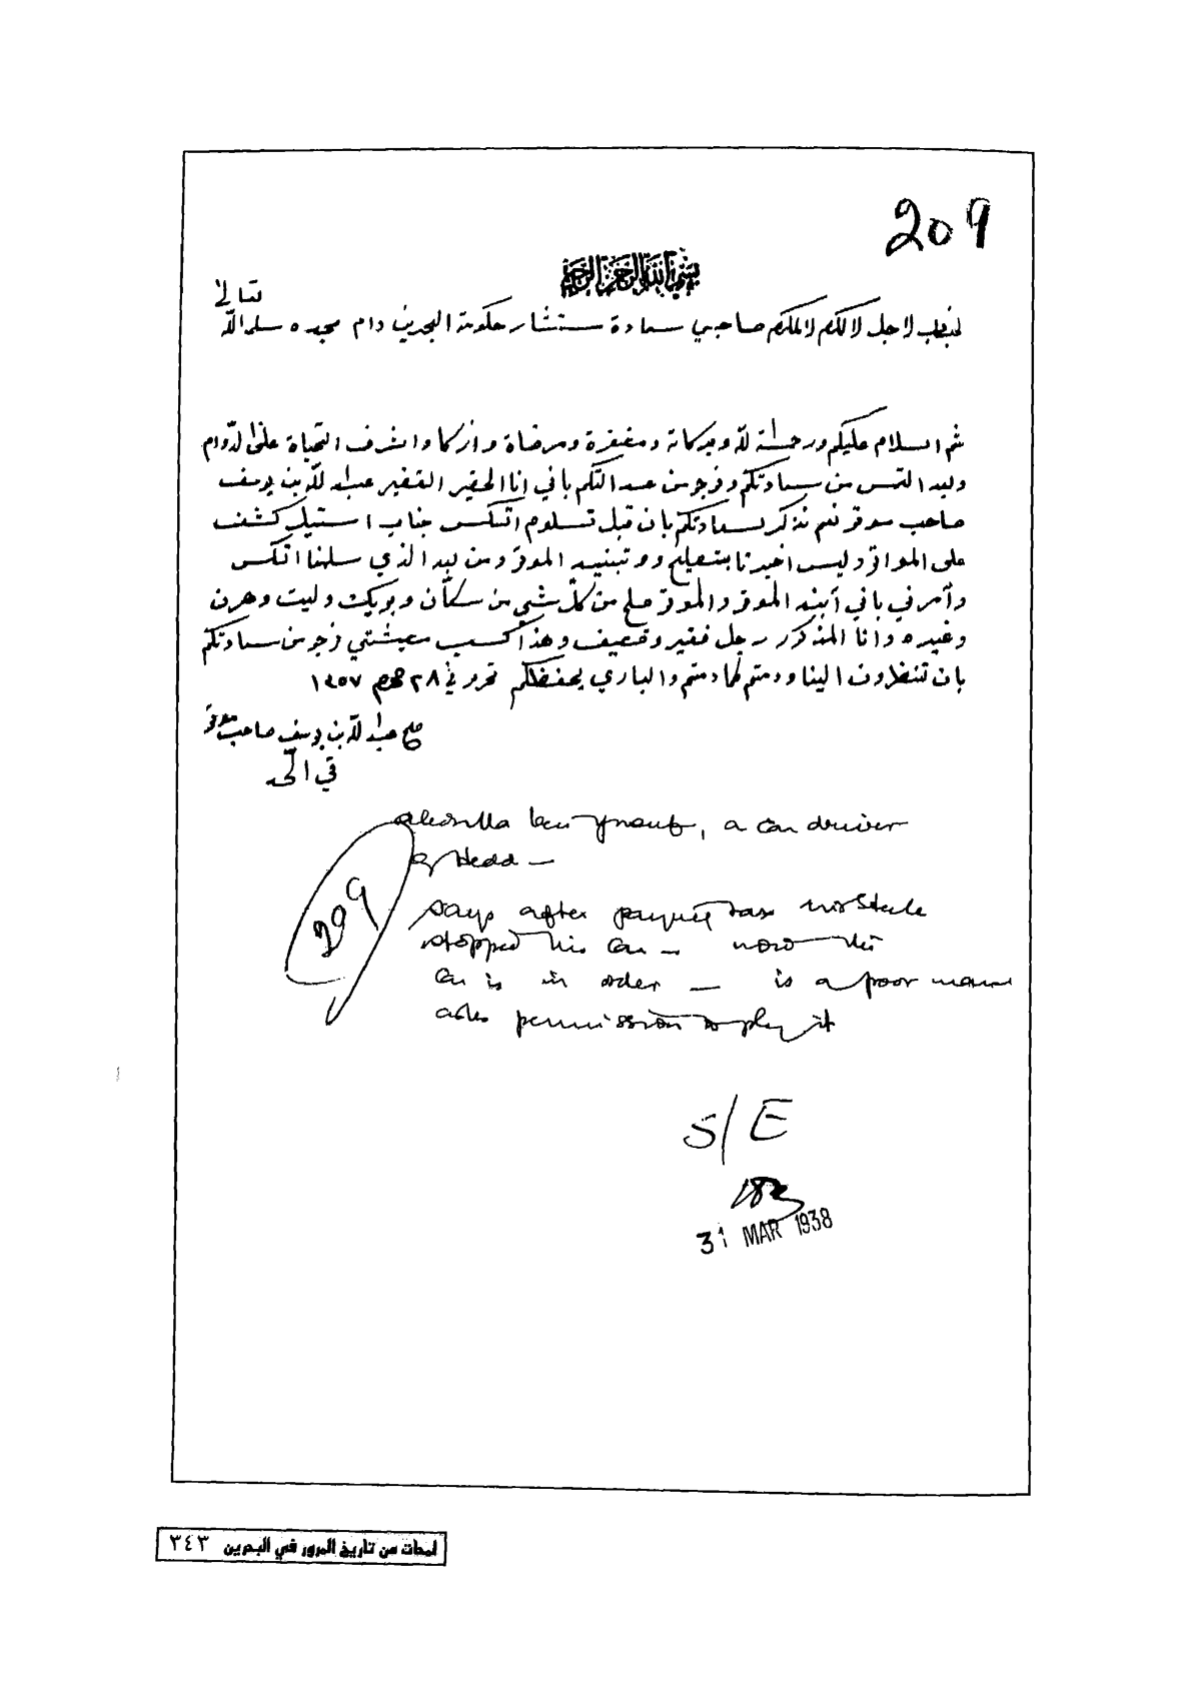 209
بسم الله الرحمن الرحيم
تعالى
لجناب لاجل لاكرم لامكرم صاحبي سعادة مستشار حكومة البحرين دام مجده سلمه الله
ثم السلام عليكم ورحمة الله وبركاته ومغفرة ومرضاة وازكا واشرف التحياة على الدوام
وبعد التمس من سعادتكم وفرجو من عدالتكم باني انا الحقير الفقير عبد الله بن يوسف
صاحب موتر نعم نذكر لسعادتكم بان قبل تسلوم التكس جناب استيل كشف
على المواتر وليس اخبرنا بتصليح وتبنيد الموتر ومن بعد الذي سلمنا التكس
وأمرني باني أبند الموتر والموتر صلح من كل شي من سكان وبريك وليت وهرن
وغيره وانا المذكور رجل فقير وضعيف وهذا كسب معيشتي نرجو من سعادتكم
بان تنظرون الينا ودمتم كما دمتم والباري يحفظكم تحرير في ٢٨ محرم ١٣٥٧
صح عبد الله بن يوسف صاحب موتر
في الحد
abdulla bin yousuf, a car driver
of Hedd —
209
says after paying tax mr Steele
stopped his car — now the
car is in order — is a poor man
asks permission to ply it
S/E
31 MAR 1938
لمحات من تاريخ المرور في البحرين ٣٤٣